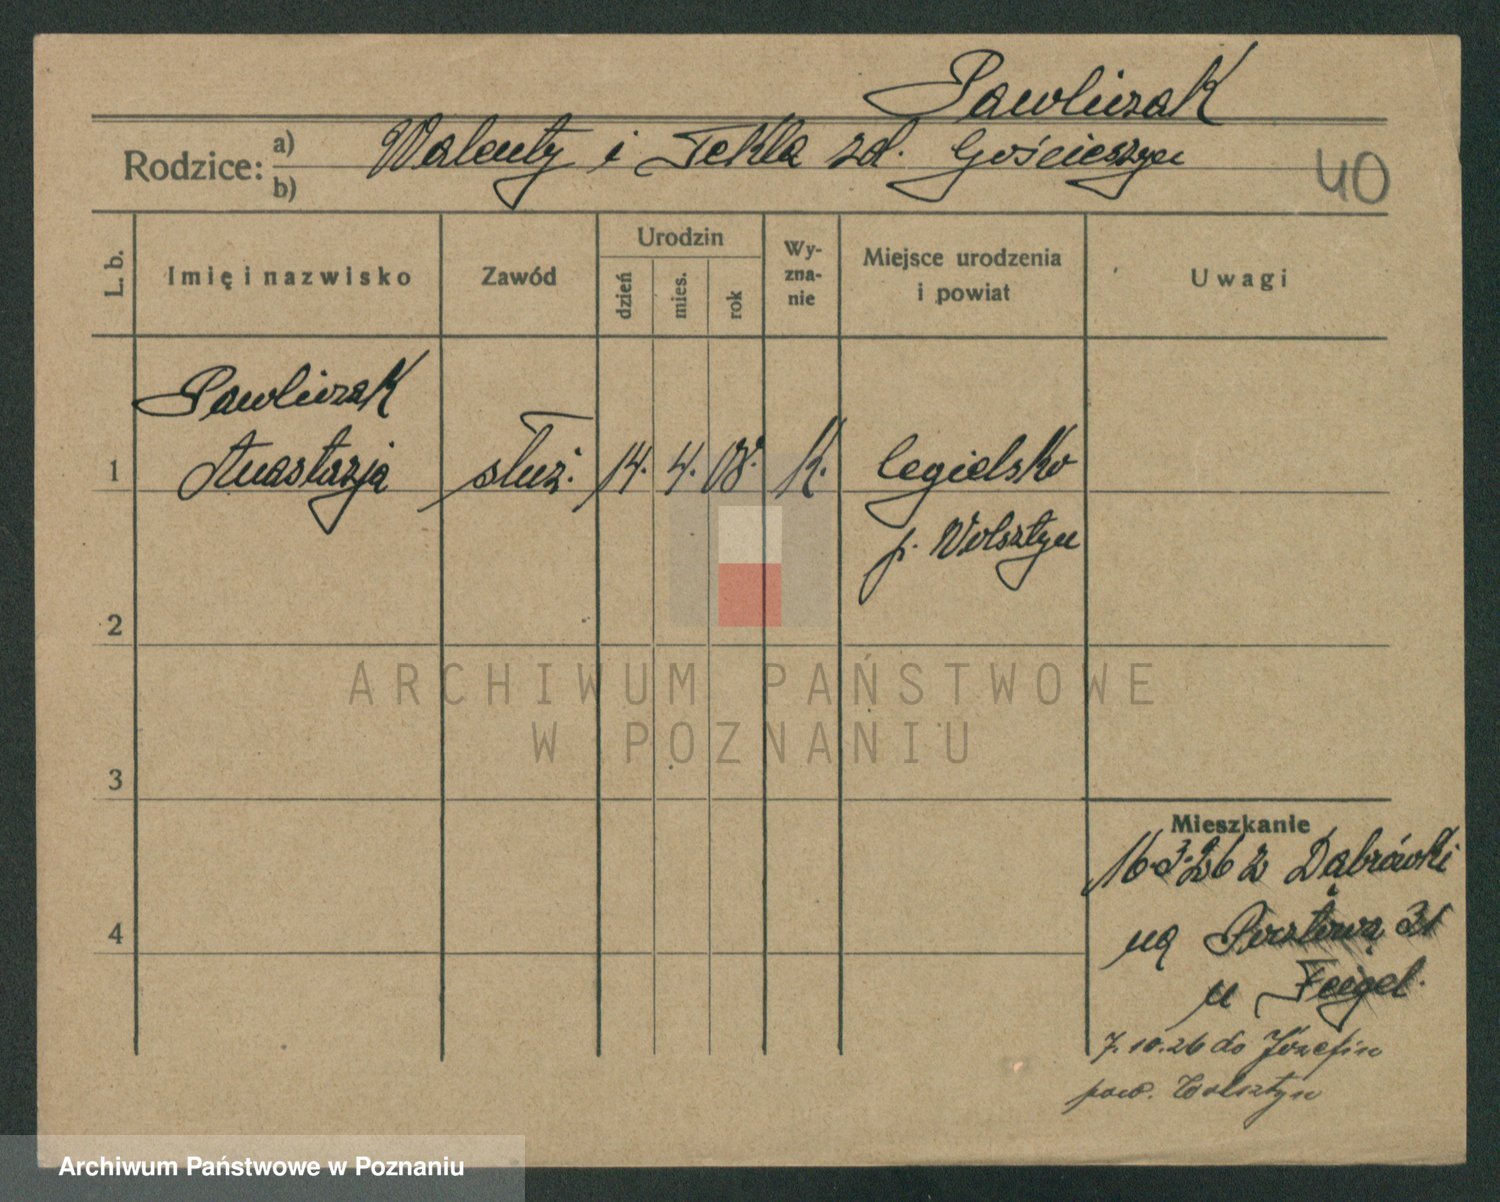 Pawliczak
Rodzice: a) Walenty i Tekla zd. Gościeszyn
b)
40
L. b.
Imię i nazwisko
Zawód
Urodzin
dzień
mies.
rok
Wy-
zna-
nie
Miejsce urodzenia
i powiat
Uwagi
Pawliczak
1 Anastazja służ. 14. 4. 08. K. Cegielsko
p. Wolsztyn
2
3
4
Mieszkanie
16.3.26 z Dąbrówki
na Pocztową 31
u Feigel.
7.10.26 do Józefin
pow. Wolsztyn
ARCHIWUM PAŃSTWOWE
W POZNANIU
Archiwum Państwowe w Poznaniu